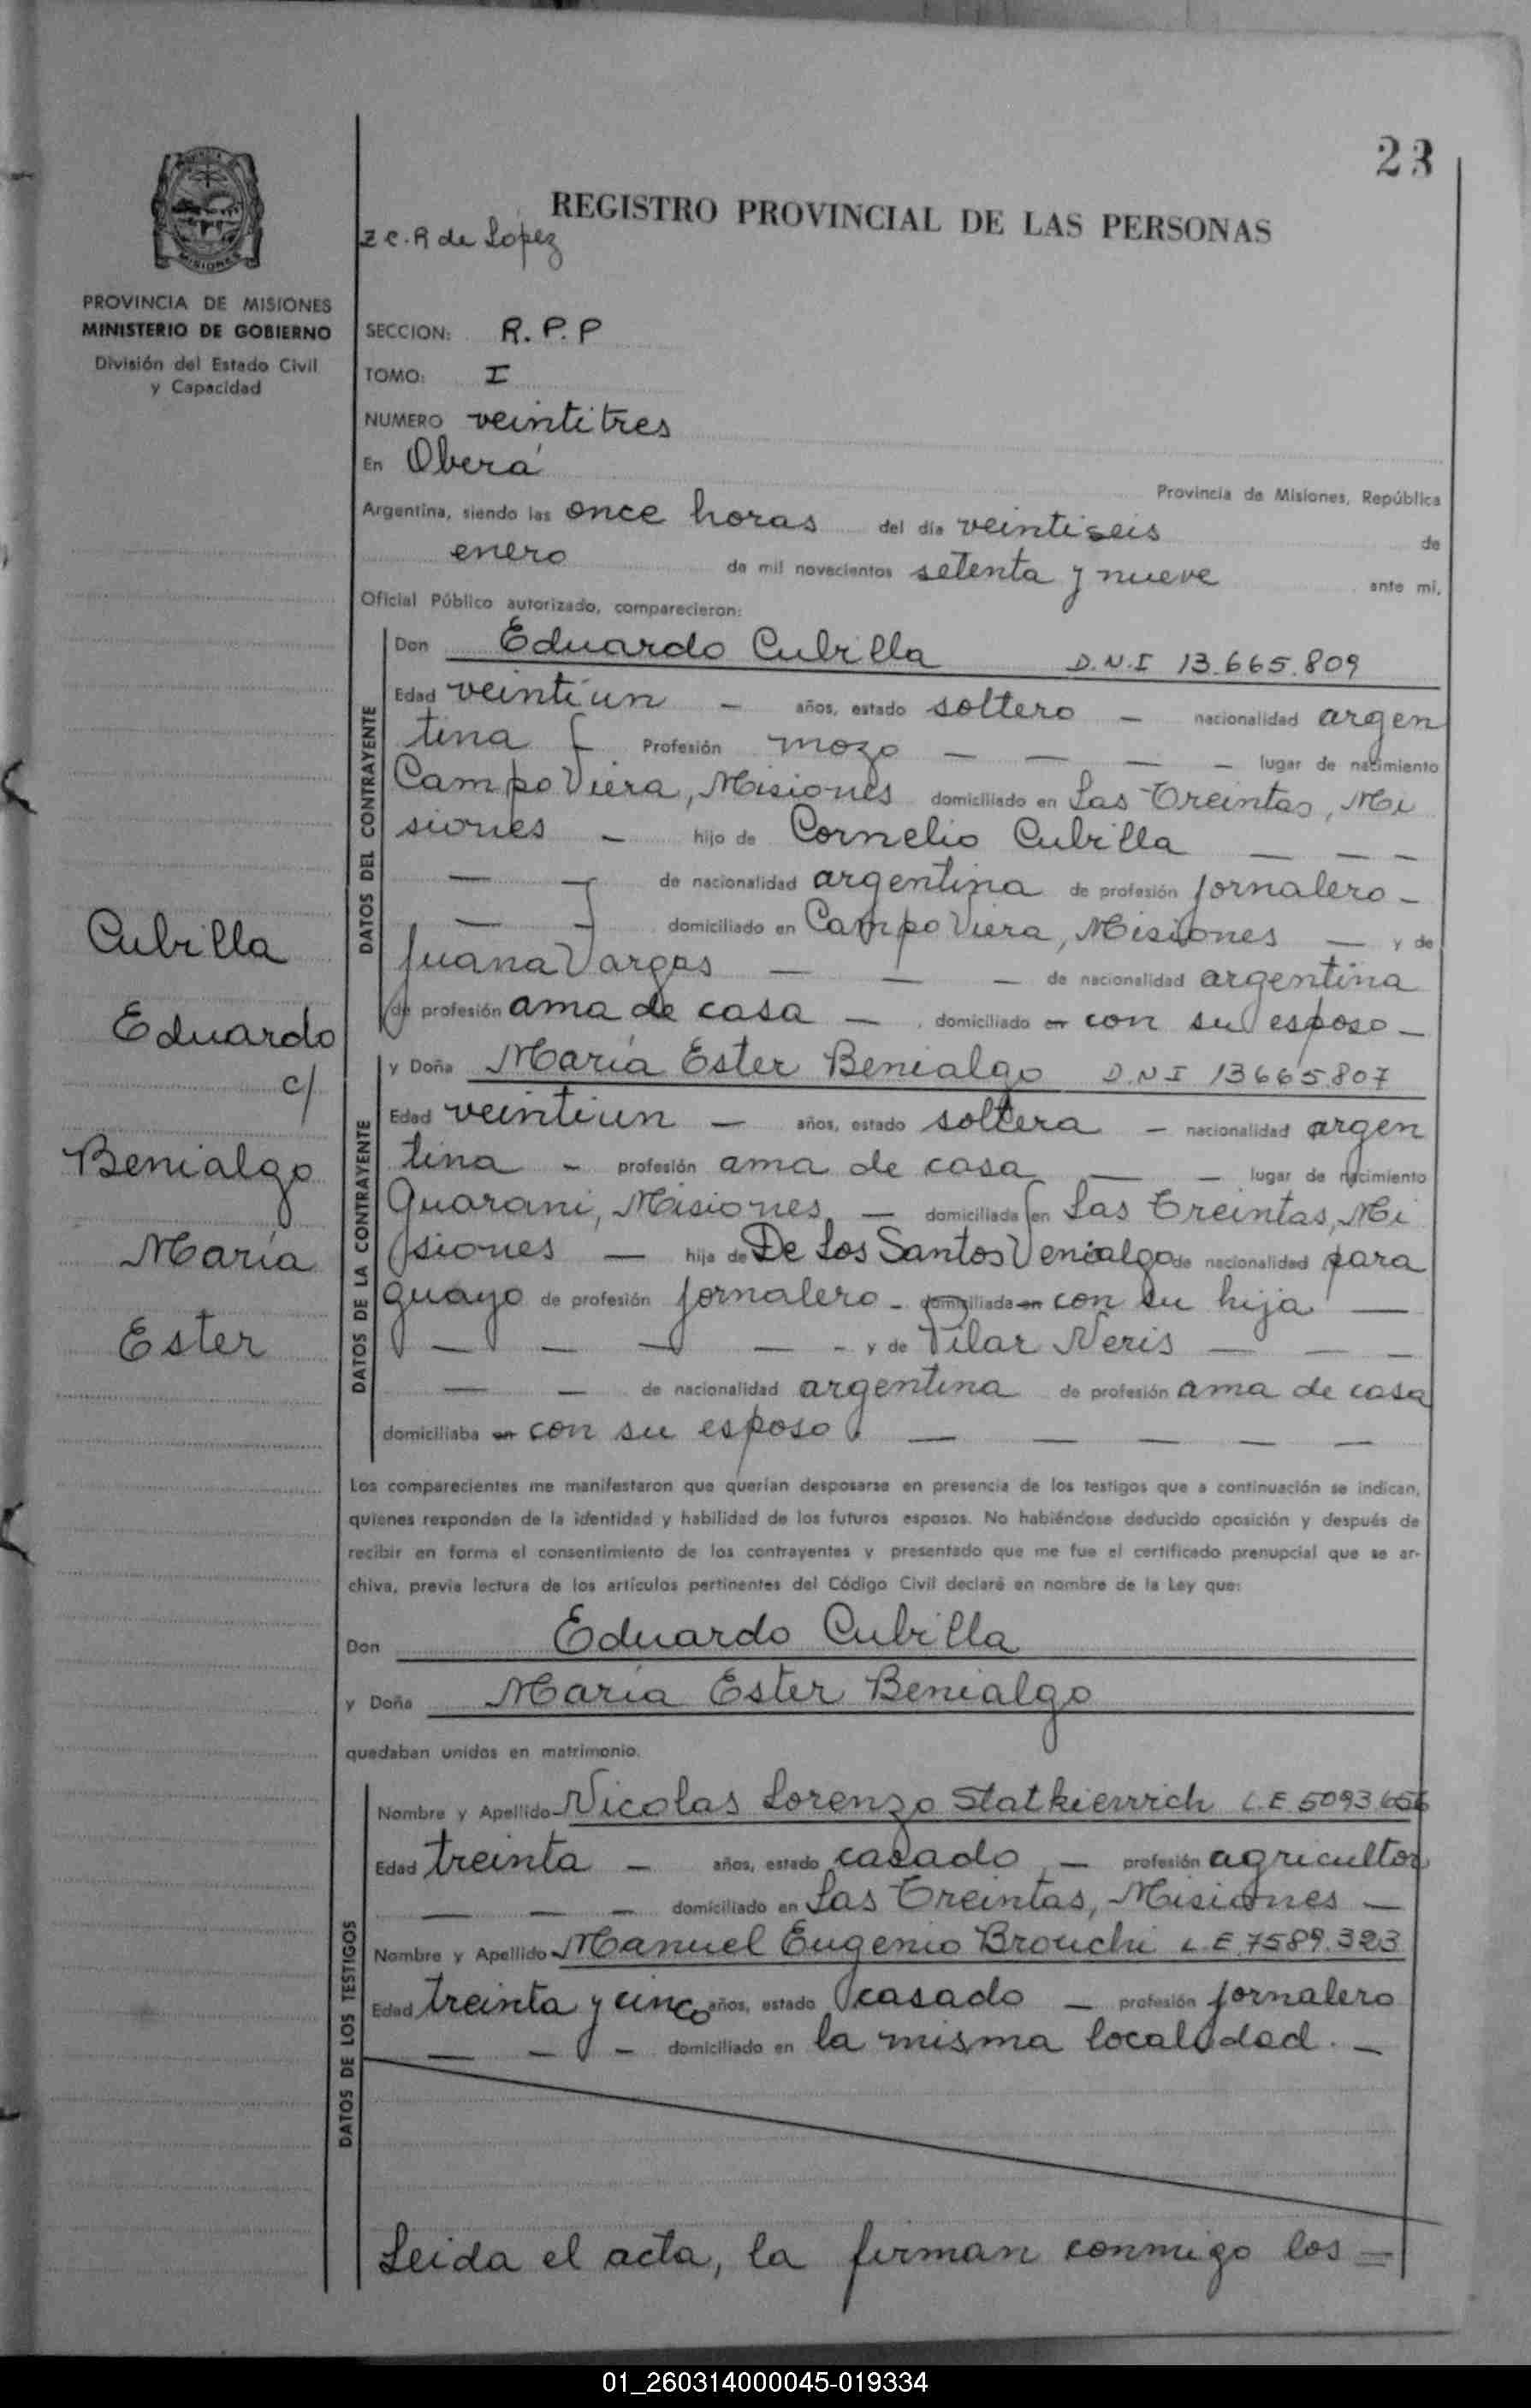 23
REGISTRO PROVINCIAL DE LAS PERSONAS
Z C. R de Lopez
MISIONES
PROVINCIA DE MISIONES
MINISTERIO DE GOBIERNO
División del Estado Civil
y Capacidad
SECCION: R.P.P
TOMO: I
NUMERO veintitres
En Oberá
Provincia de Misiones, República
Argentina, siendo las once horas del día veintiseis de
enero de mil novecientos setenta y nueve ante mi,
Oficial Público autorizado, comparecieron:
DATOS DEL CONTRAYENTE
Don Eduardo Cubilla D.N.I 13.665.809
Edad veintiun – años, estado soltero – nacionalidad argen
tina – Profesión mozo — — — – lugar de nacimiento
Campo Viera, Misiones domiciliado en Las Treintas, Mi
siones – hijo de Cornelio Cubilla — — –
— – de nacionalidad argentina de profesión jornalero –
— – domiciliado en Campo Viera, Misiones — y de
Juana Vargas — — – de nacionalidad argentina
de profesión ama de casa — domiciliado en con su esposo –
Cubilla
Eduardo
c/
Benialgo
María
Ester
DATOS DE LA CONTRAYENTE
y Doña María Ester Benialgo D.N.I 13665.807
Edad veintiun – años, estado soltera – nacionalidad argen
tina – profesión ama de casa — – lugar de nacimiento
Guarani, Misiones – domiciliada en Las Treintas, Mi
siones — hija de De Los Santos Venialgo de nacionalidad para
guayo de profesión jornalero – domiciliada en con su hija —
— — — — – y de Pilar Neris — — –
— — de nacionalidad argentina de profesión ama de casa
domiciliaba en con su esposo. — — — — —
Los comparecientes me manifestaron que querían desposarse en presencia de los testigos que a continuación se indican,
quienes responden de la identidad y habilidad de los futuros esposos. No habiéndose deducido oposición y después de
recibir en forma el consentimiento de los contrayentes y presentado que me fue el certificado prenupcial que se ar-
chiva, previa lectura de los artículos pertinentes del Código Civil declaré en nombre de la Ley que:
Don Eduardo Cubilla
y Doña María Ester Benialgo
quedaban unidos en matrimonio.
DATOS DE LOS TESTIGOS
Nombre y Apellido Nicolas Lorenzo Statkiewich L.E 5093.656
Edad treinta – años, estado casado – profesión agricultor
— — – domiciliado en Las Treintas, Misiones —
Nombre y Apellido Manuel Eugenio Brouchi L.E 7589.323
Edad treinta y cinco años, estado casado – profesión jornalero
— – – domiciliado en la misma localidad. –
Leida el acta, la firman conmigo los =
01_260314000045-019334